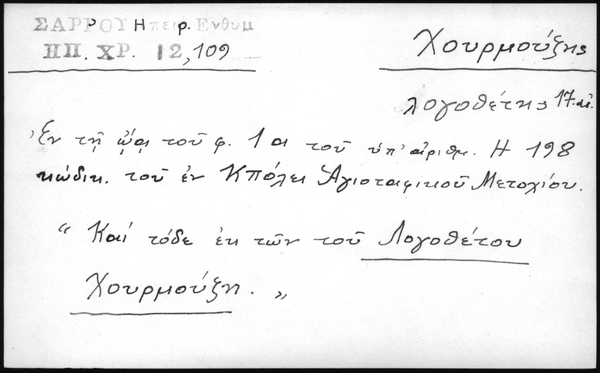 ΣΑΡΡΟΥ Ηπειρ. Ενθυμ
ΗΠ. ΧΡ. 12, 109
Χουρμούζης
λογοθέτης 17 αἰ.
Ἐν τῇ ᾤᾳ τοῦ φ. 1α τοῦ ὑπ' ἀριθμ. Η 198
κώδικ. τοῦ ἐν Κπόλει Ἁγιοταφικοῦ Μετοχίου.
“ Καί τόδε ἐκ τῶν τοῦ Λογοθέτου
Χουρμούζη. „